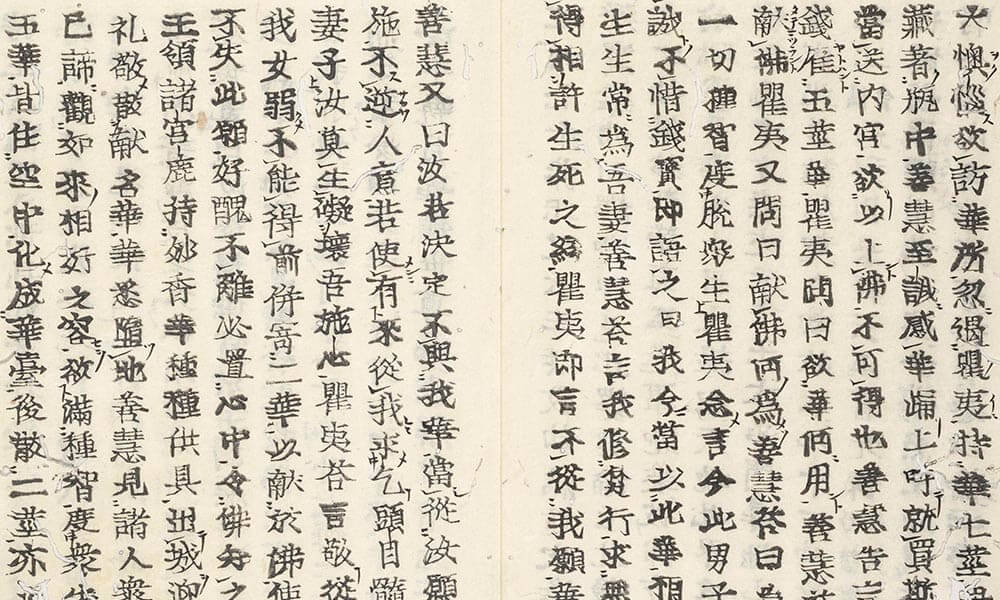 大懊惱欲訪華所忽遇瞿夷持華七莖
藏著瓶中善慧至誠感華踊上呼就買
當送内宮欲以上佛不可得也善慧告言
錢雇五莖華瞿夷問曰欲華何用善慧
献佛瞿夷又問曰献佛何為善慧荅曰為
一切種智度脫衆生瞿夷念言今此男子
誠不惜錢寶即語之曰我今當以此華相
生生常為吾妻善慧荅言我修梵行求無
得相許生死之緣瞿夷即言不從我願華
善慧又曰汝若決定不與我華當從汝願
施不逆人意若使有來從我求乞頭目髓
妻子汝莫生礙壞吾施心瞿夷荅言敬從
我女弱不能得前併寄二華以献於佛使
不失此願好醜不離必置心中令佛知之
王領諸官鹿持妙香華種種供具出城迎
礼敬散献名華華悉墮地善慧見諸人衆
已諦觀如來相好之容欲滿種智度衆生
五華皆住空中化成華臺後散二莖亦